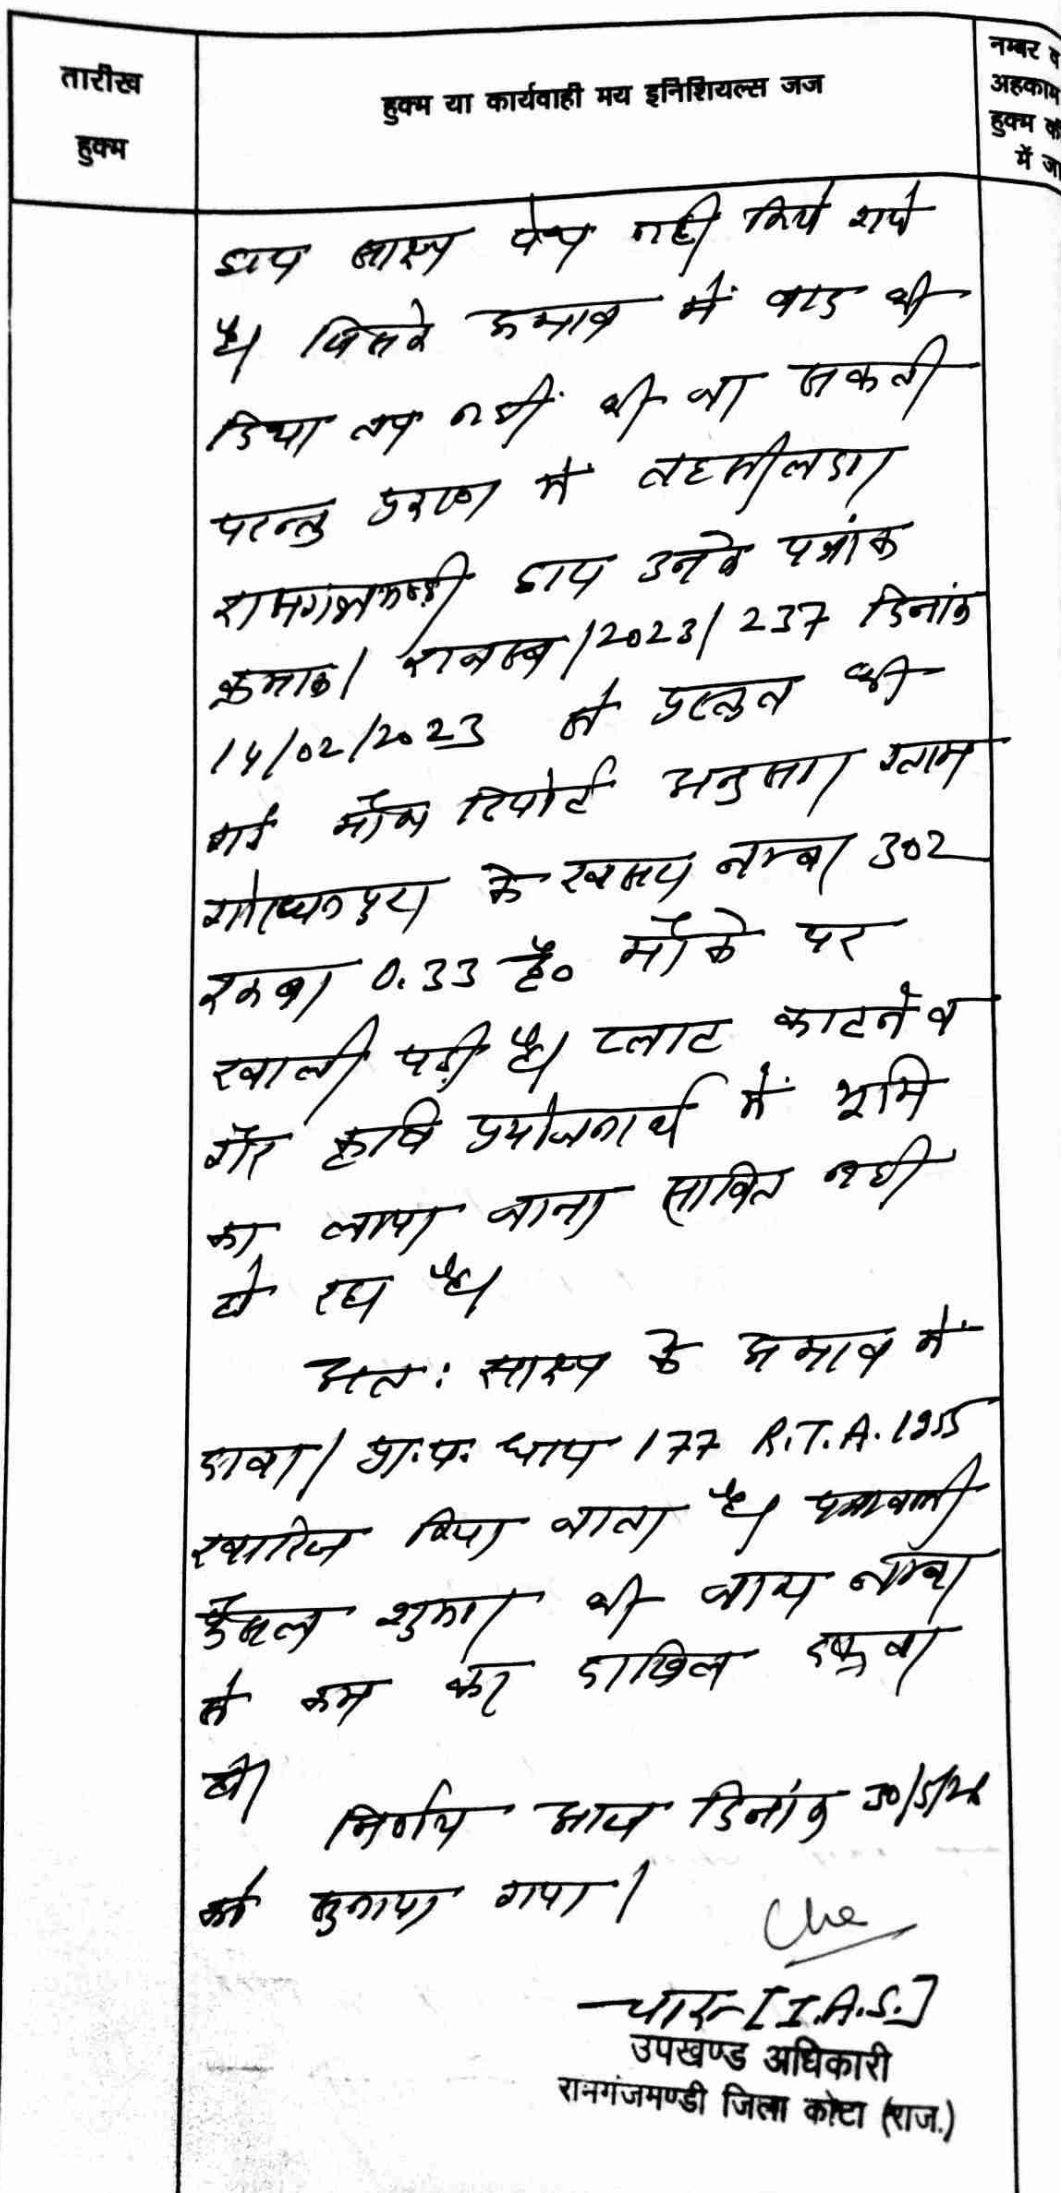 तारीख
हुक्म
हुक्म या कार्यवाही मय इनिशियल्स जज
नम्बर व
अहकाम
हुक्म की
में जा
द्वारा साक्ष्य पेश नही किये गये
है। जिसके अभाव में वाद की
डिग्री नही की जा सकती
परन्तु प्रकरण में तहसीलदार
रामगंजमण्डी द्वारा उनके पत्रांक
क्रमांक/राजस्व/2023/237 दिनांक
14/02/2023 से प्रस्तुत की
गई मौका रिपोर्ट अनुसार ग्राम
गोरधनपुरा के खसरा नम्बर 302
रकबा 0.33 है० मौके पर
खाली पड़ी है। प्लाट काटने व
गैर कृषि प्रयोजनार्थ में भूमि
का लाया जाना साबित नही
हो रहा है।
अत: साक्ष्य के अभाव में
दावा/प्रा.प. धारा 177 R.T.A. 1955
खारिज किया जाता है। पत्रावली
फैसल शुमार की जाय नम्बर
से कम कर दाखिल दफ्तर
हो।
निर्णय आज दिनांक 30/5/24
को सुनाया गया।
चारु [I.A.S.]
उपखण्ड अधिकारी
रामगंजमण्डी जिला कोटा (राज.)